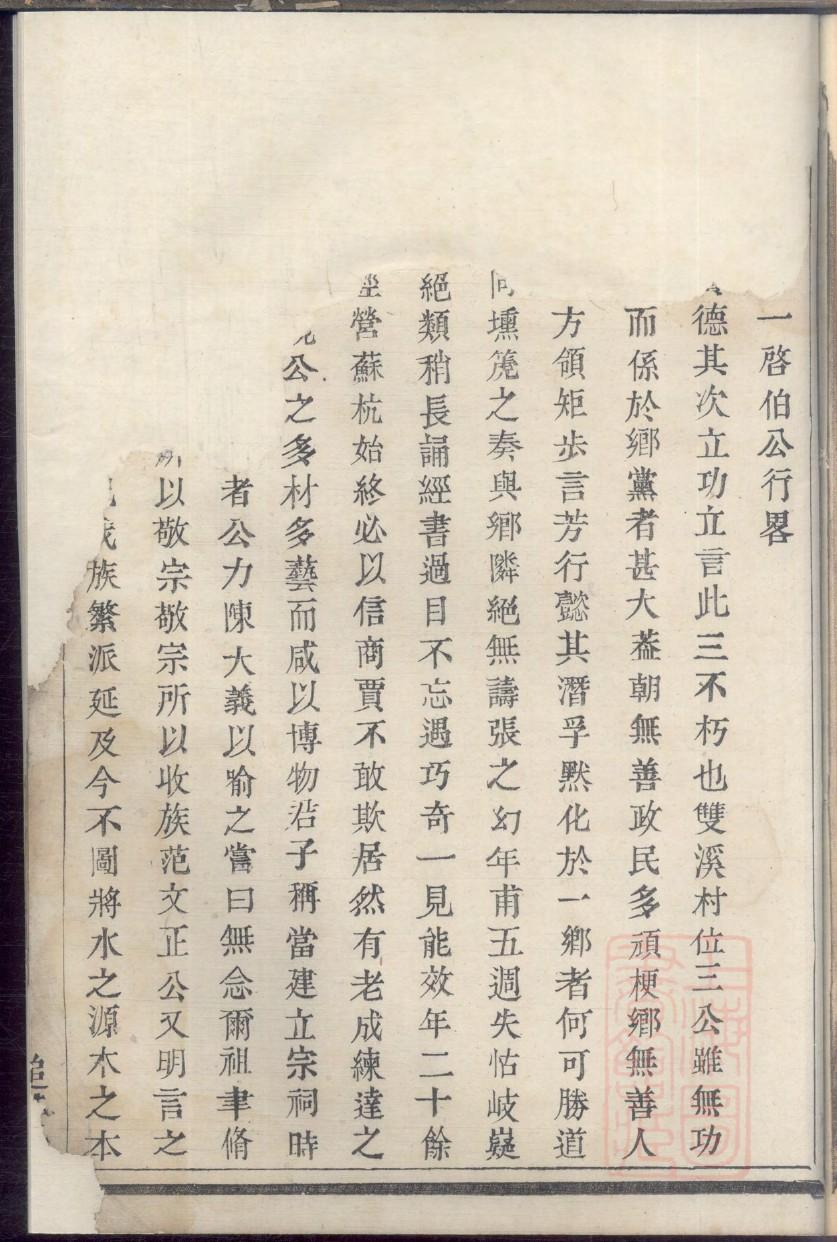 一啓伯公行畧
德其次立功立言此三不朽也雙溪村位三公雖無功
而係於鄉黨者甚大葢朝無善政民多頑梗鄉無善人
方領矩步言芳行懿其潛孚默化於一鄉者何可勝道
壎箎之奏與鄉隣絕無譸張之幻年甫五週失怙岐嶷
絕類稍長誦經書過目不忘遇巧奇一見能效年二十餘
營蘇杭始終必以信商賈不敢欺居然有老成練達之
公之多材多藝而咸以博物君子稱當建立宗祠時
者公力陳大義以喻之嘗曰無念爾祖聿脩
以敬宗敬宗所以收族范文正公又明言之
族繁派延及今不圖將水之源木之本